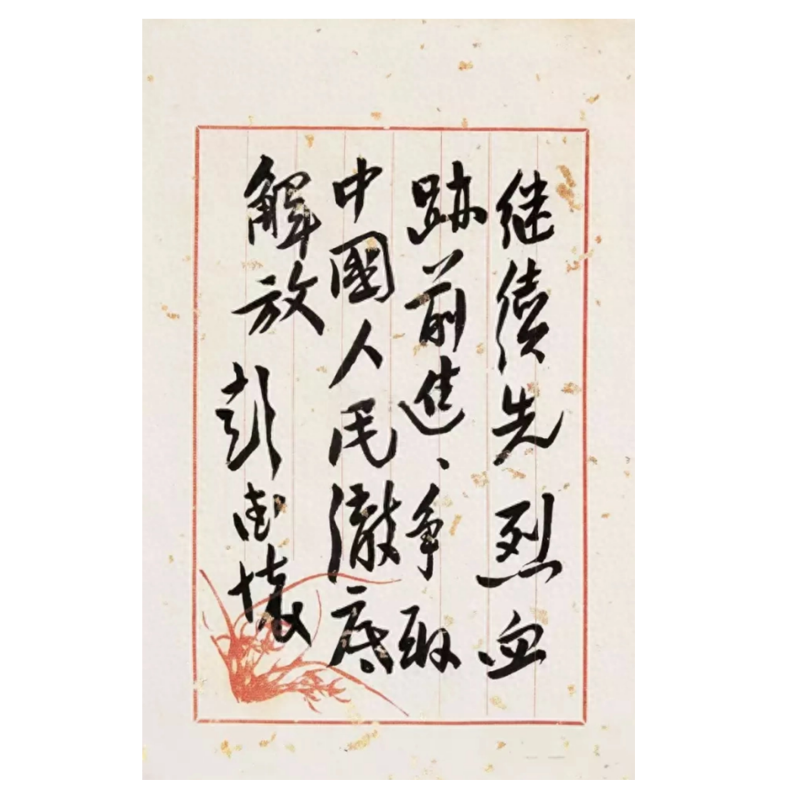 继续先烈血
跡前进、争取
中國人民徹底
解放 彭德懷